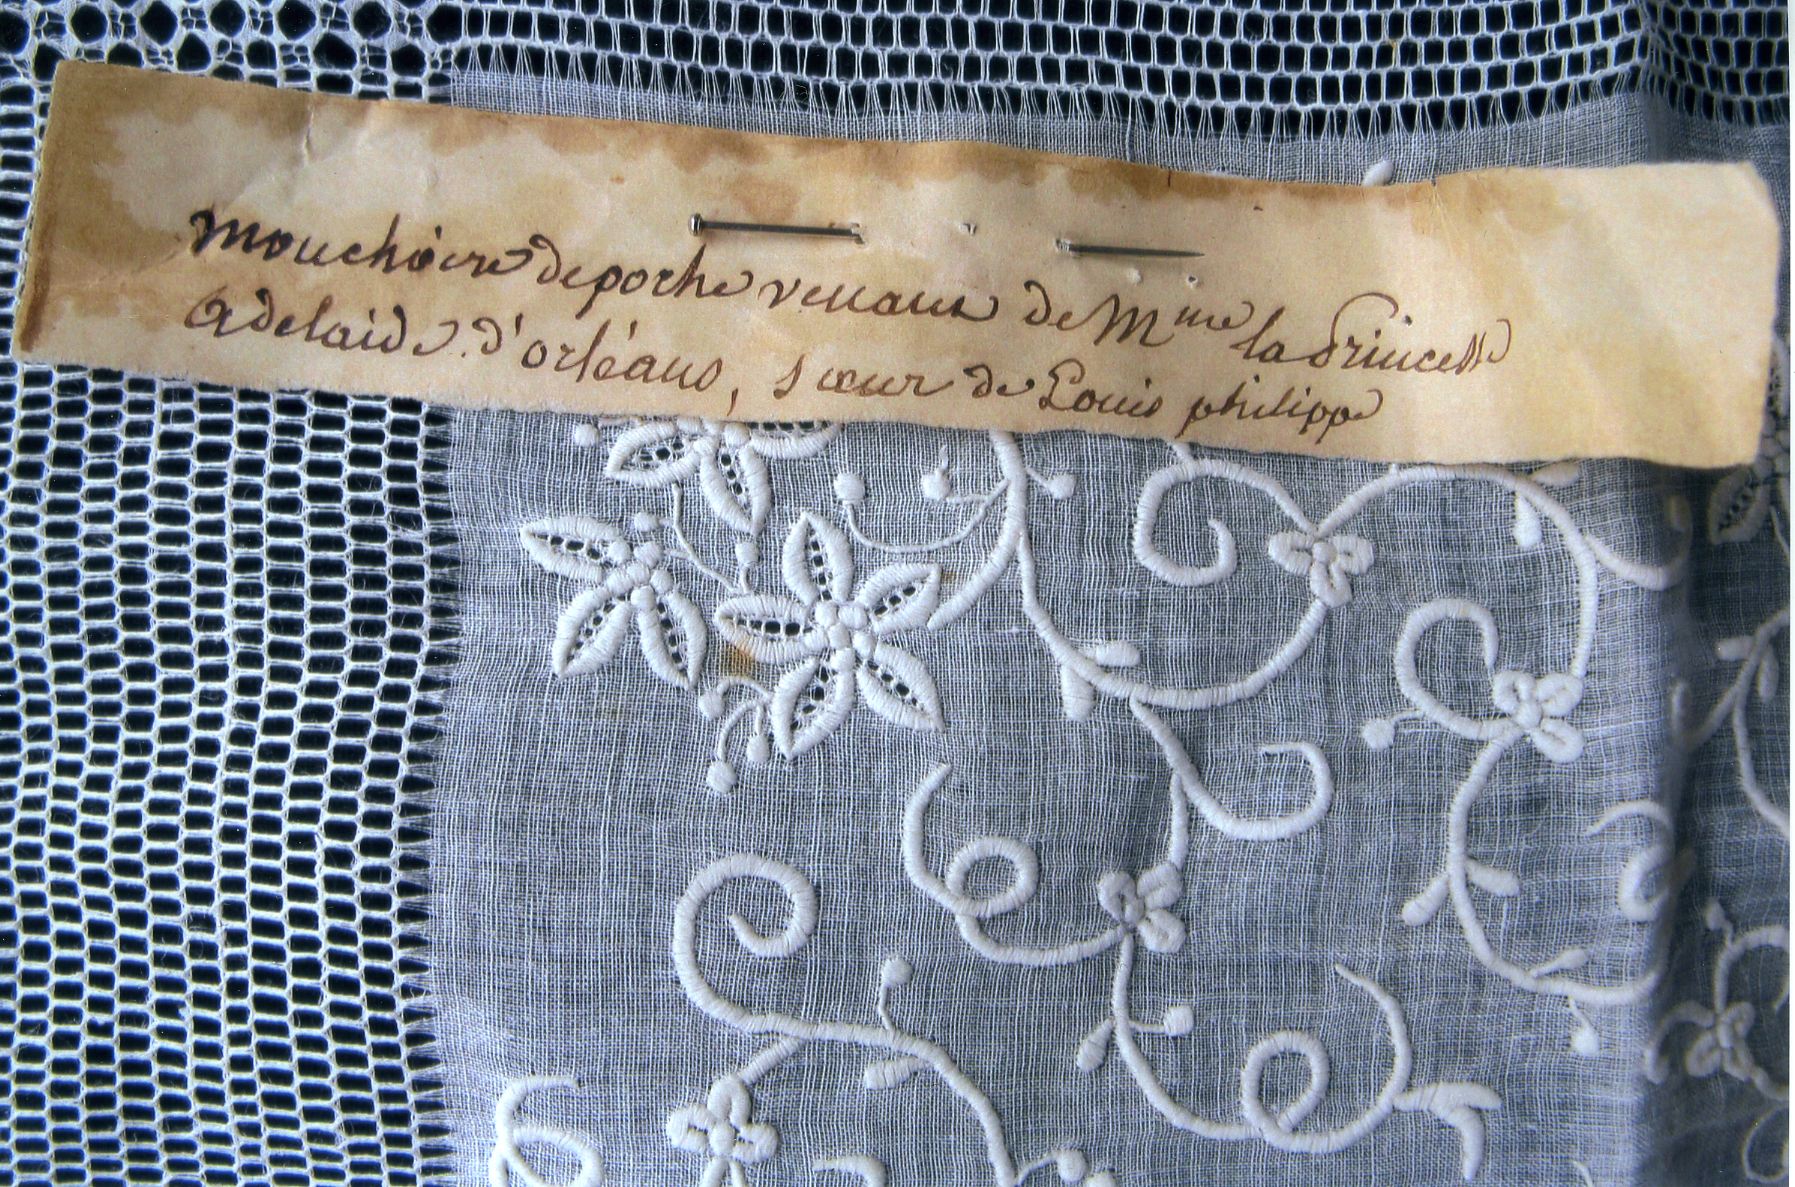 Mouchoire de poche venant de Mme la Princesse
Adelaide. d'orléans, sœur de Louis philippe